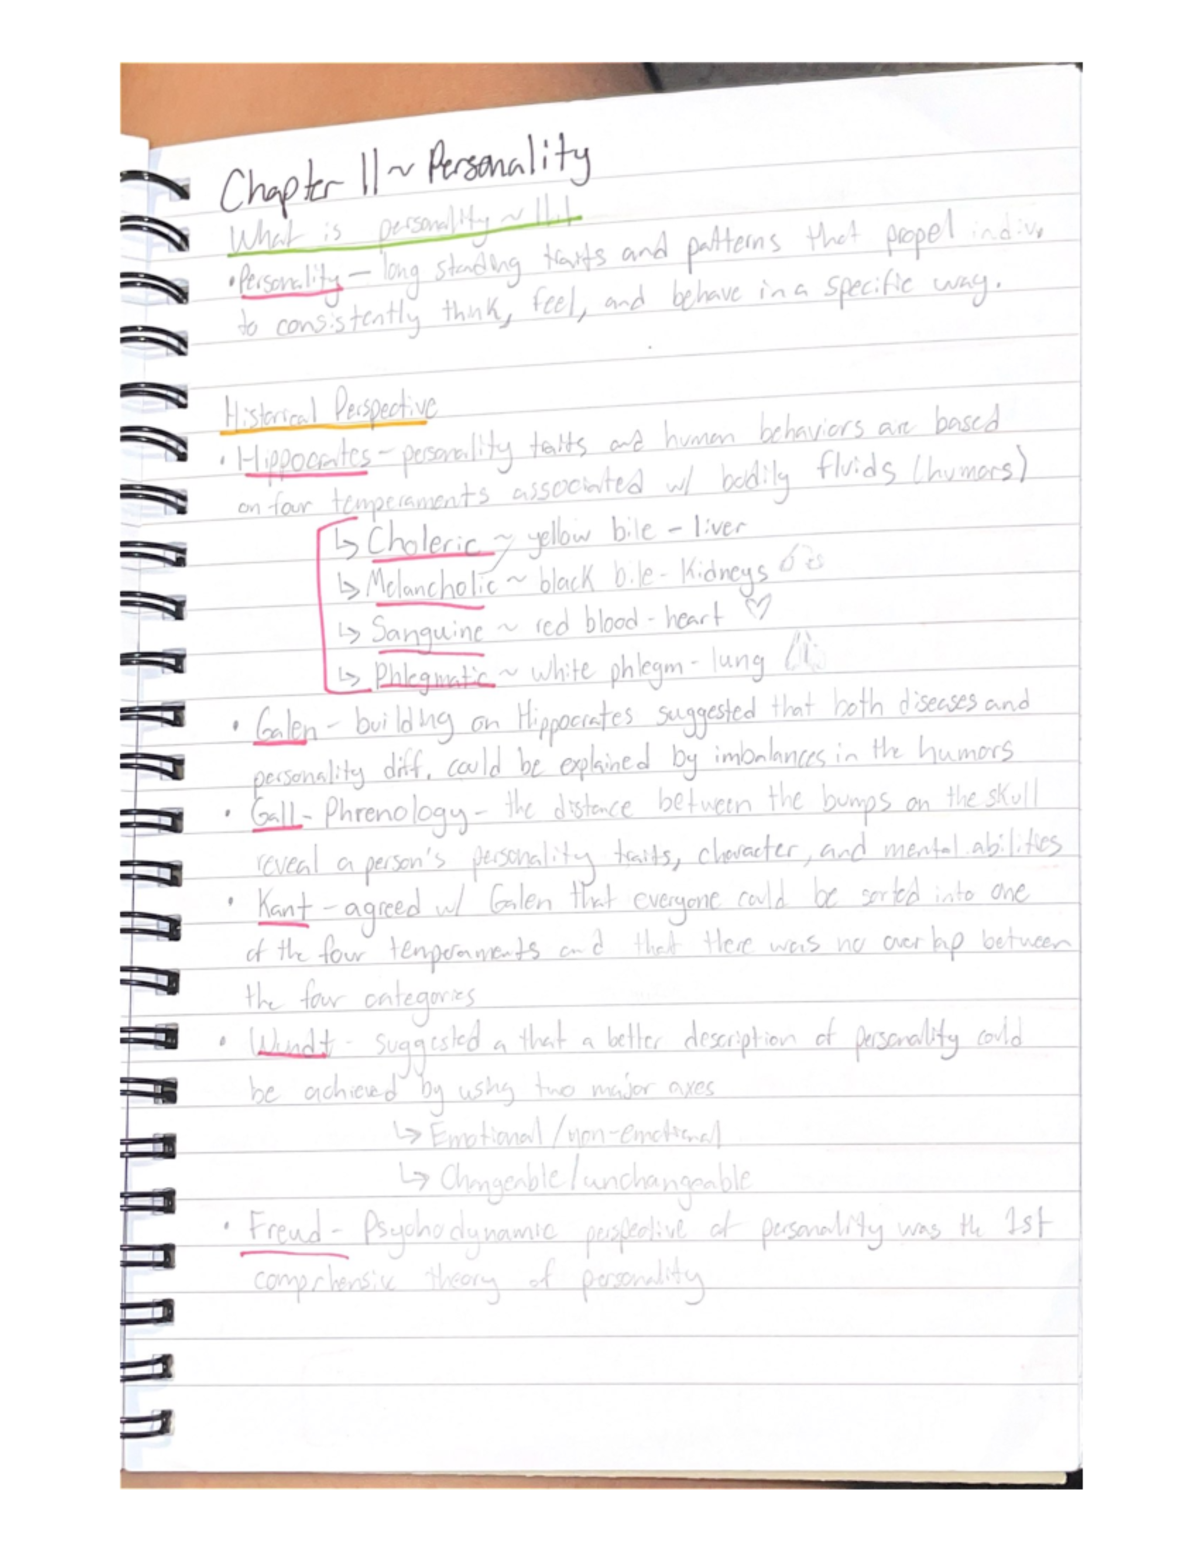 Chapter 11 ~ Personality
What is personality ~ 11.1
• Personality — long standing traits and patterns that propel indiv.
to consistently think, feel, and behave in a specific way.
Historical Perspective
• Hippocrates - personality traits and human behaviors are based
on four temperaments associated w/ bodily fluids (humors)
↳ Choleric ~ yellow bile - liver
↳ Melancholic ~ black bile - Kidneys
↳ Sanguine ~ red blood - heart ♡
↳ Phlegmatic ~ white phlegm - lung
• Galen - building on Hippocrates suggested that both diseases and
personality diff. could be explained by imbalances in the humors
• Gall - Phrenology - the distance between the bumps on the skull
reveal a person's personality traits, character, and mental abilities
• Kant - agreed w/ Galen that everyone could be sorted into one
of the four temperaments and that there was no overlap between
the four categories
• Wundt - suggested a that a better description of personality could
be achieved by using two major axes
↳ Emotional/non-emotional
↳ Changeable/unchangeable
• Freud - Psychodynamic perspective of personality was the 1st
comprehensive theory of personality